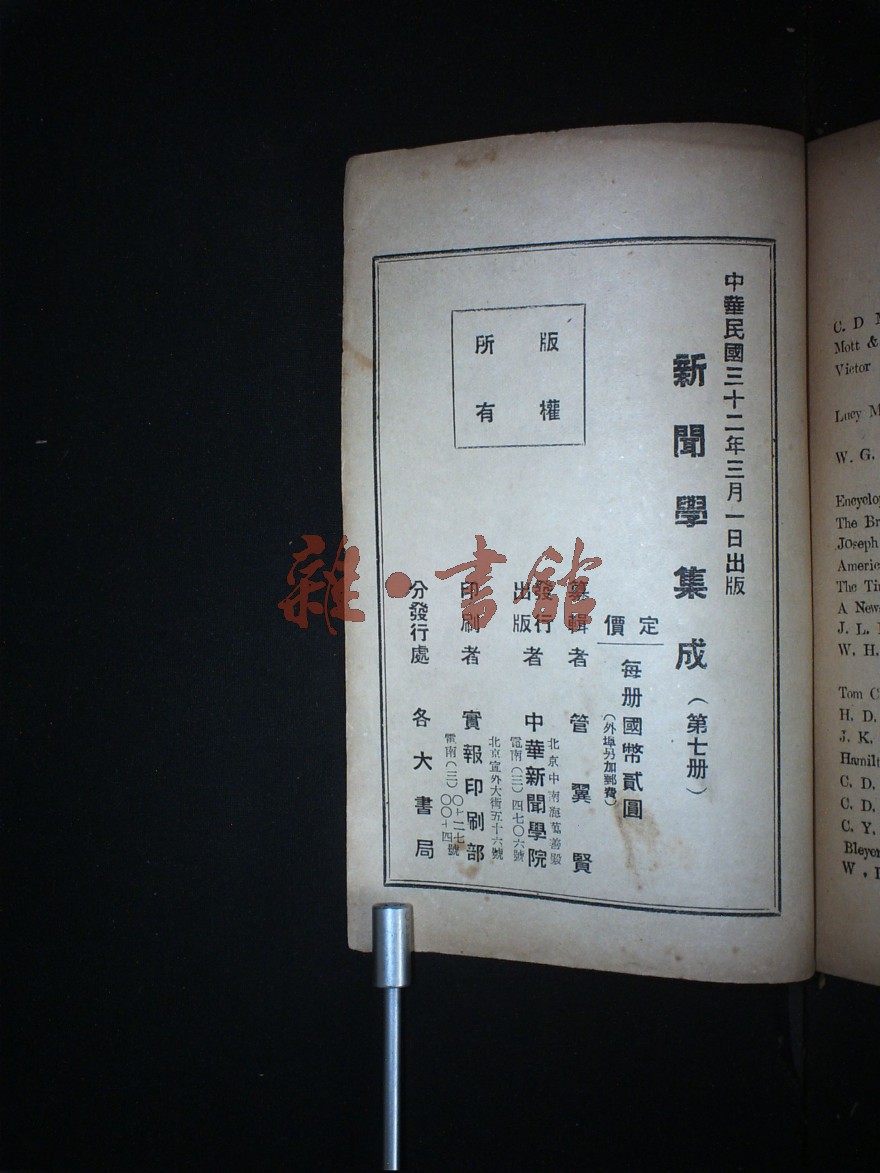 中華民國三十二年三月一日出版
新聞學集成（第七册）
定價
每册國幣貳圓
（外埠另加郵費）
纂輯者 管翼賢
北京中南海萬善殿
發行者
出版
中華新聞學院
電南（三）四七〇六號
北京宣外大街五十六號
印刷者 實報印刷部
電南（三）
分發行處 各大書局
版權
所有
雜·書館
C. D
Mott &
Victor
Lucy M
W. G.
The Br
Joseph
The Ti
A New
J. L.
W. H.
Tom C
H. D.
J. K.
C. D.
C. D.
C. Y.
W. I